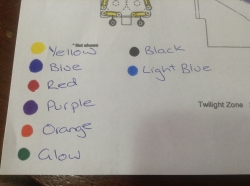 * Not shown
Yellow
Blue
Red
Purple
Orange
Glow
Black
Light Blue
Twilight Zone